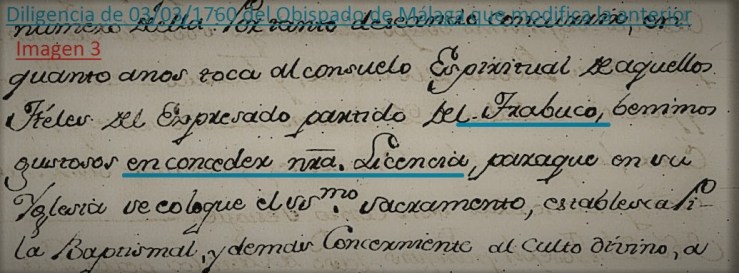 Diligencia de 03/03/1760 del Obispado de Málaga que modifica la anterior
numero della Por tanto deseando concurrir, en
Imagen 3
quanto a nos toca al consuelo Espiritual de aquellos
Fieles del Expresado partido del Trabuco, benimos
gustosos en conceder nrã. Licencia, para que en su
Yglesia se coloque el SSmo. Sacramento, establesca Pi-
la Baptismal, y demas Concerniente al Culto divino, a